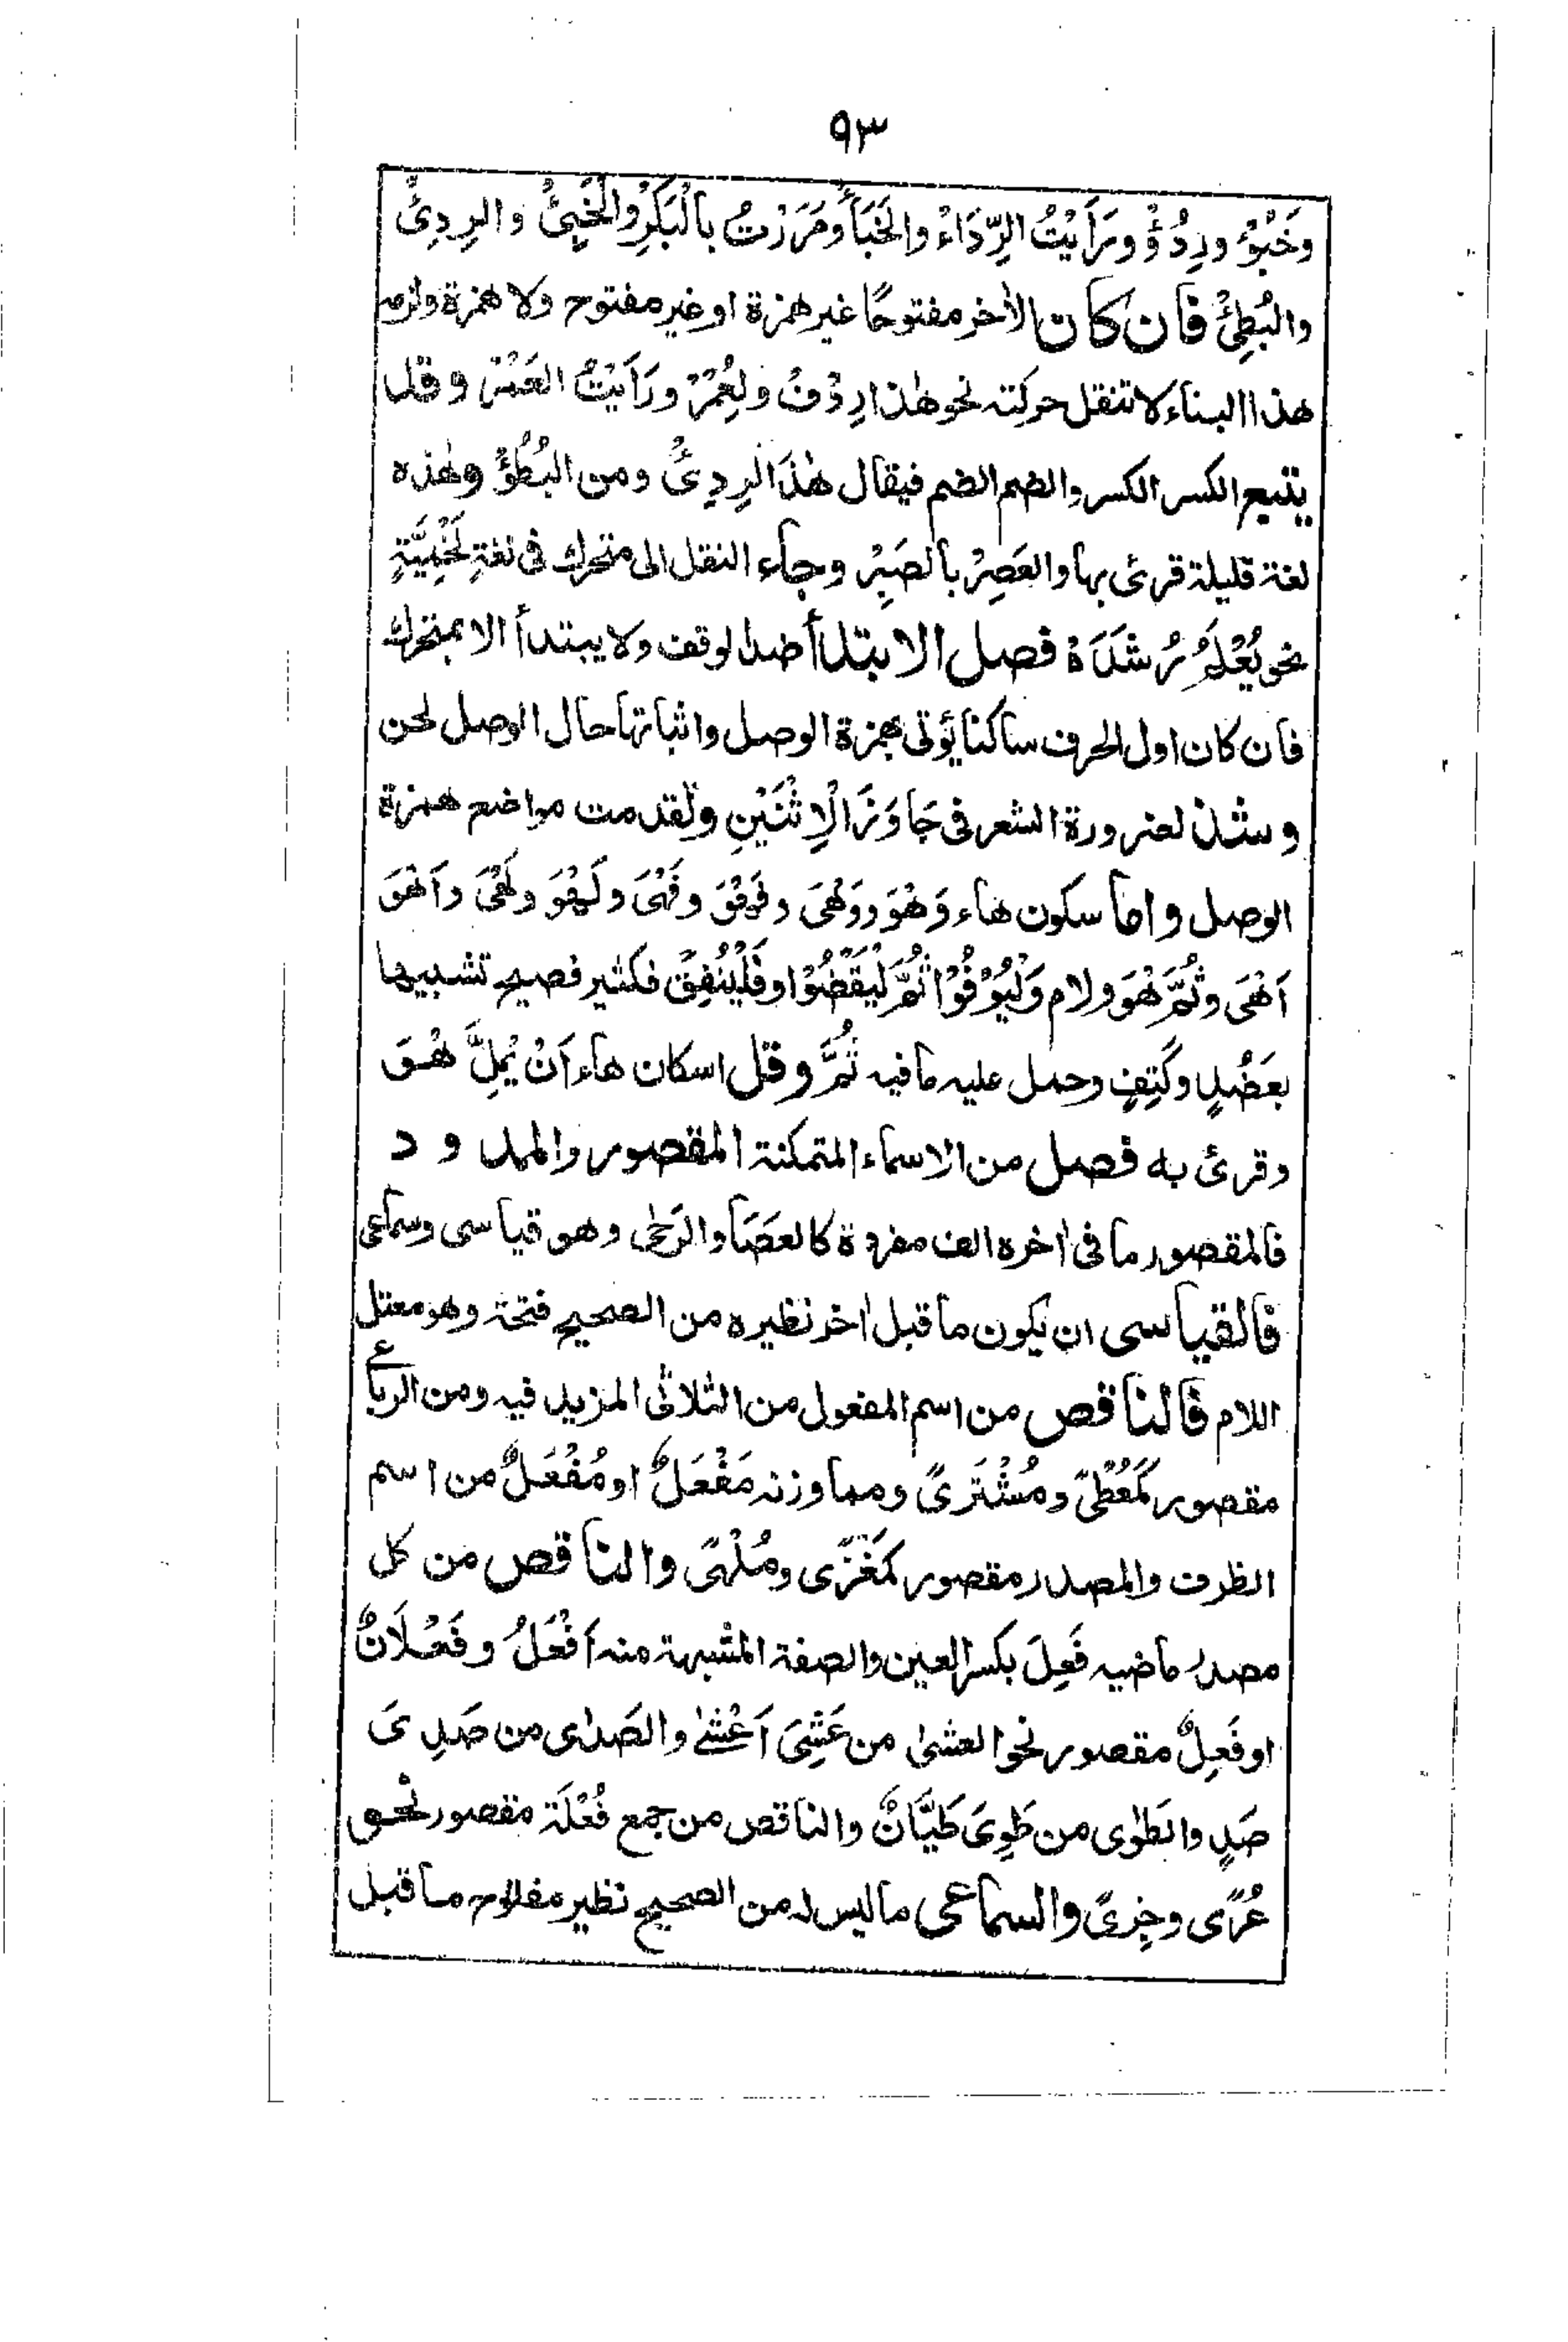 ٩٣
وَخَبُؤْ ورِدُؤْ ورَأَيْتُ الرِّدَاءْ والخَبَأْ ومَرَرْتُ بالْبَكِرْ والْخَبِئْ والرِدِئْ
والبُطِئْ فان كان الأخر مفتوحًا غير همزة او غير مفتوح ولا همزة ولزم
هذا البناء لا تنقل حركته نحو هٰذا رِدْفٌ ولِعُمْرْ ورَاَيْتُ العَمْرْ وقل
يتبع الكسر الكسر والضم الضم فيقال هٰذَا الرِدِئُ ومن البُطُؤُ وهٰذه
لغة قليلة قرئ بها والعَصِرْ بالصَبِرْ وجاء النقل الى متحرك فى لغةِ لَخْمِيَّةٍ
نحو يُعْلَمُ رُشْدَهُ فصل الابتدأ ضد الوقف ولا يبتدأ الا بمتحرك
فان كان اول الحرف ساكنا يؤتى بهمزة الوصل واثباتها حال الوصل لحن
وشذ لضرورة الشعر فى جَاوَزَ الْاِثْنَيْنِ ولقد مت مواضع همزة
الوصل واما سكون هاء وَهْوَ ووَهْىَ وفَهْوَ وفَهْىَ ولَهْوَ ولَهْىَ واَهْوَ
اَهْىَ وثُمَّ هْوَ ولام وَلْيُوْفُوْا ثُمَّ لْيَقْضُوْا وفَلْيُنْفِقْ فكثير فصيح تشبيها
بعَضُدٍ وكَتِفٍ وحمل عليه ما فيه ثُمَّ وقل اسكان هاء اَنْ يُمِلَّ هْوَ
وقرئ به فصل من الاسماء المتمكنة المقصور والممدود
فالمقصور ما فى اٰخره الف مفردة كالعصَا والرَحٰى وهو قياسى وسماعى
فالقياسى ان يكون ما قبل اٰخر نظيره من الصحيح فتحة وهو معتل
اللام فالناقص من اسم المفعول من الثلاثى المزيد فيه ومن الرباعى
مقصور كمُعْطًى ومُشْتَرًى ومما وزنه مَفْعَلٌ او مُفْعَلٌ من اسم
الظرف والمصدر مقصور كمَغْزًى ومُلْهًى والناقص من كل
مصدر ماضيه فَعِلَ بكسر العين والصفة المشبهة منه اَفْعَلُ وفَعْلَانٌ
او فَعِلٌ مقصور نحو العشىٰ من عَشِىَ اَعْشٰے والصَدٰى من صَدِىَ
صَدٍ والطَوٰى من طَوِىَ طَيَّانٌ والناقص من جمع فُعْلَة مقصور نحو
عُرًى وجِزًى والسماعى ما ليس له من الصحيح نظير مفتوح ما قبل